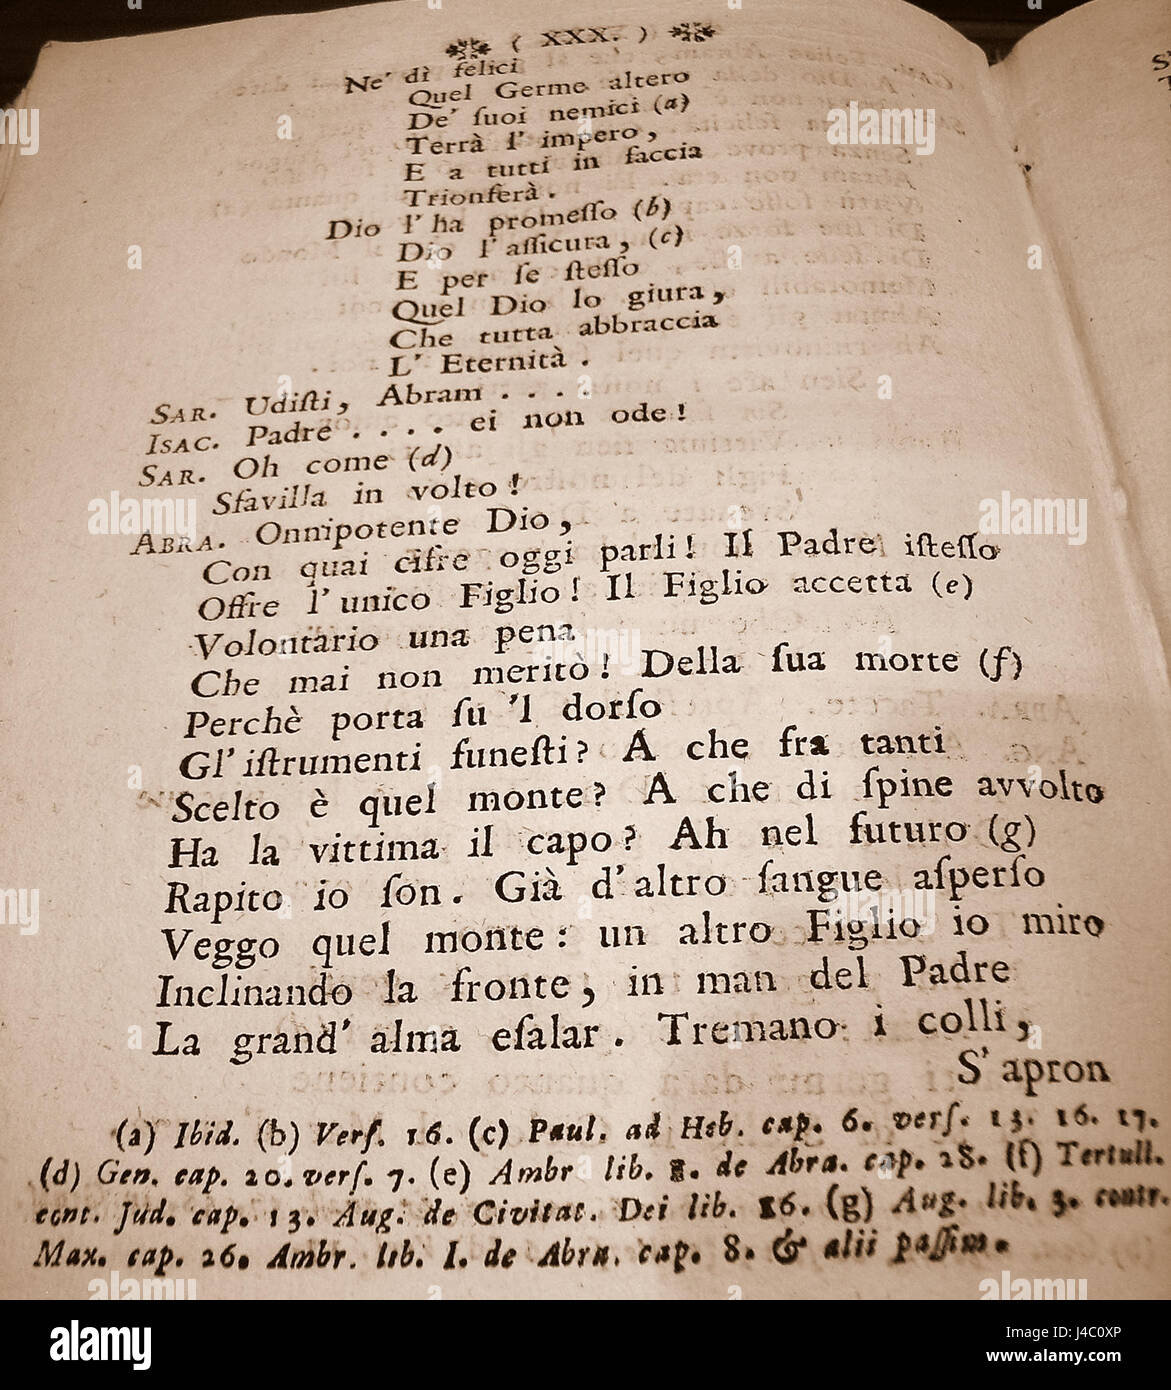 ( XXX. )
Ne' dì felici
Quel Germe altero
De' ſuoi nemici (a)
Terrà l' impero,
E a tutti in faccia
Trionferà.
Dio l' ha promeſſo (b)
Dio l' aſſicura, (c)
E per ſe ſteſſo
Quel Dio lo giura,
Che tutta abbraccia
L' Eternità.
SAR. Udiſti, Abram . . . .
ISAC. Padre . . . . ei non ode!
SAR. Oh come (d)
Sfavilla in volto!
ABRA. Onnipotente Dio,
Con quai cifre oggi parli! Il Padre iſteſſo
Offre l'unico Figlio! Il Figlio accetta (e)
Volontario una pena
Che mai non meritò! Della ſua morte (f)
Perchè porta ſu 'l dorſo
Gl'iſtrumenti funeſti? A che fra tanti
Scelto è quel monte? A che di ſpine avvolto
Ha la vittima il capo? Ah nel futuro (g)
Rapito io ſon. Già d'altro ſangue aſperſo
Veggo quel monte: un altro Figlio io miro
Inclinando la fronte, in man del Padre
La grand' alma eſalar. Tremano i colli,
S' apron
(a) Ibid. (b) Verſ. 16. (c) Paul. ad Heb. cap. 6. verſ. 13. 16. 17.
(d) Gen. cap. 20. verſ. 7. (e) Ambr lib. de Abra. cap. 28. (f) Tertull.
cont. Jud. cap. 13. Aug. de Civitat. Dei lib. 16. (g) Aug. lib. 3. contr.
Max. cap. 26. Ambr. lib. I. de Abra. cap. 8. & alii paſſim.
alamy
Image ID: J4C0XP
www.alamy.com